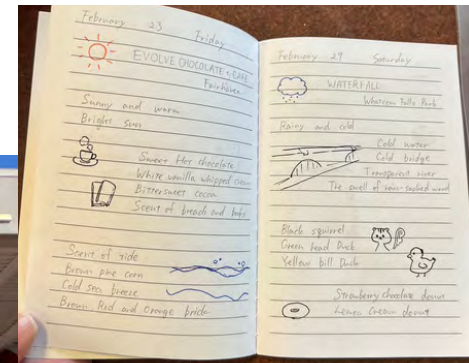 February 23 Friday
EVOLVE CHOCOLATE + CAFE
Fairhaven
Sunny and warm
Bright sun
Sweet Hot chocolate
White vanilla whipped cream
Bittersweet cocoa
Scent of breach and
Scent of tide
Brown pine corn
Cold sea breeze
Brown, Red and Orange brick
February 29 Saturday
WATERFALL
Whatcom Falls Park
Rainy and cold
Cold water
Cold bridge
Transparent river
The smell of rain-soaked wood
Black squirrel
Green head Duck
Yellow bill Duck
Strawberry chocolate donut
Lemon Cream donut